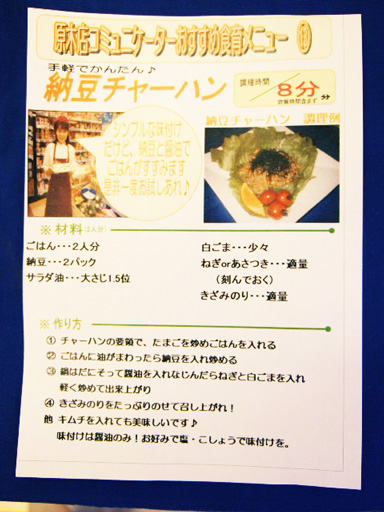 原木店コミュニケーターおすすめ食育メニュー ⑲
手軽でかんたん♪
納豆チャーハン
調理時間
8分
炊飯時間含まず
分
シンプルな味付け
だけど、納豆と醤油で
ごはんがすすみます
是非一度お試しあれ♪
納豆チャーハン 調理例
※ 材料(2人分)
ごはん・・・2人分
納豆・・・2パック
サラダ油・・・大さじ1.5位
白ごま・・・少々
ねぎorあさつき・・・適量
(刻んでおく)
きざみのり・・・適量
※ 作り方
① チャーハンの要領で、たまごを炒めごはんを入れる
② ごはんに油がまわったら納豆を入れ炒める
③ 鍋はだにそって醤油を入れなじんだらねぎと白ごまを入れ
軽く炒めて出来上がり
④ きざみのりをたっぷりのせて召し上がれ!
他 キムチを入れても美味しいです♪
味付けは醤油のみ!お好みで塩・こしょうで味付けを。